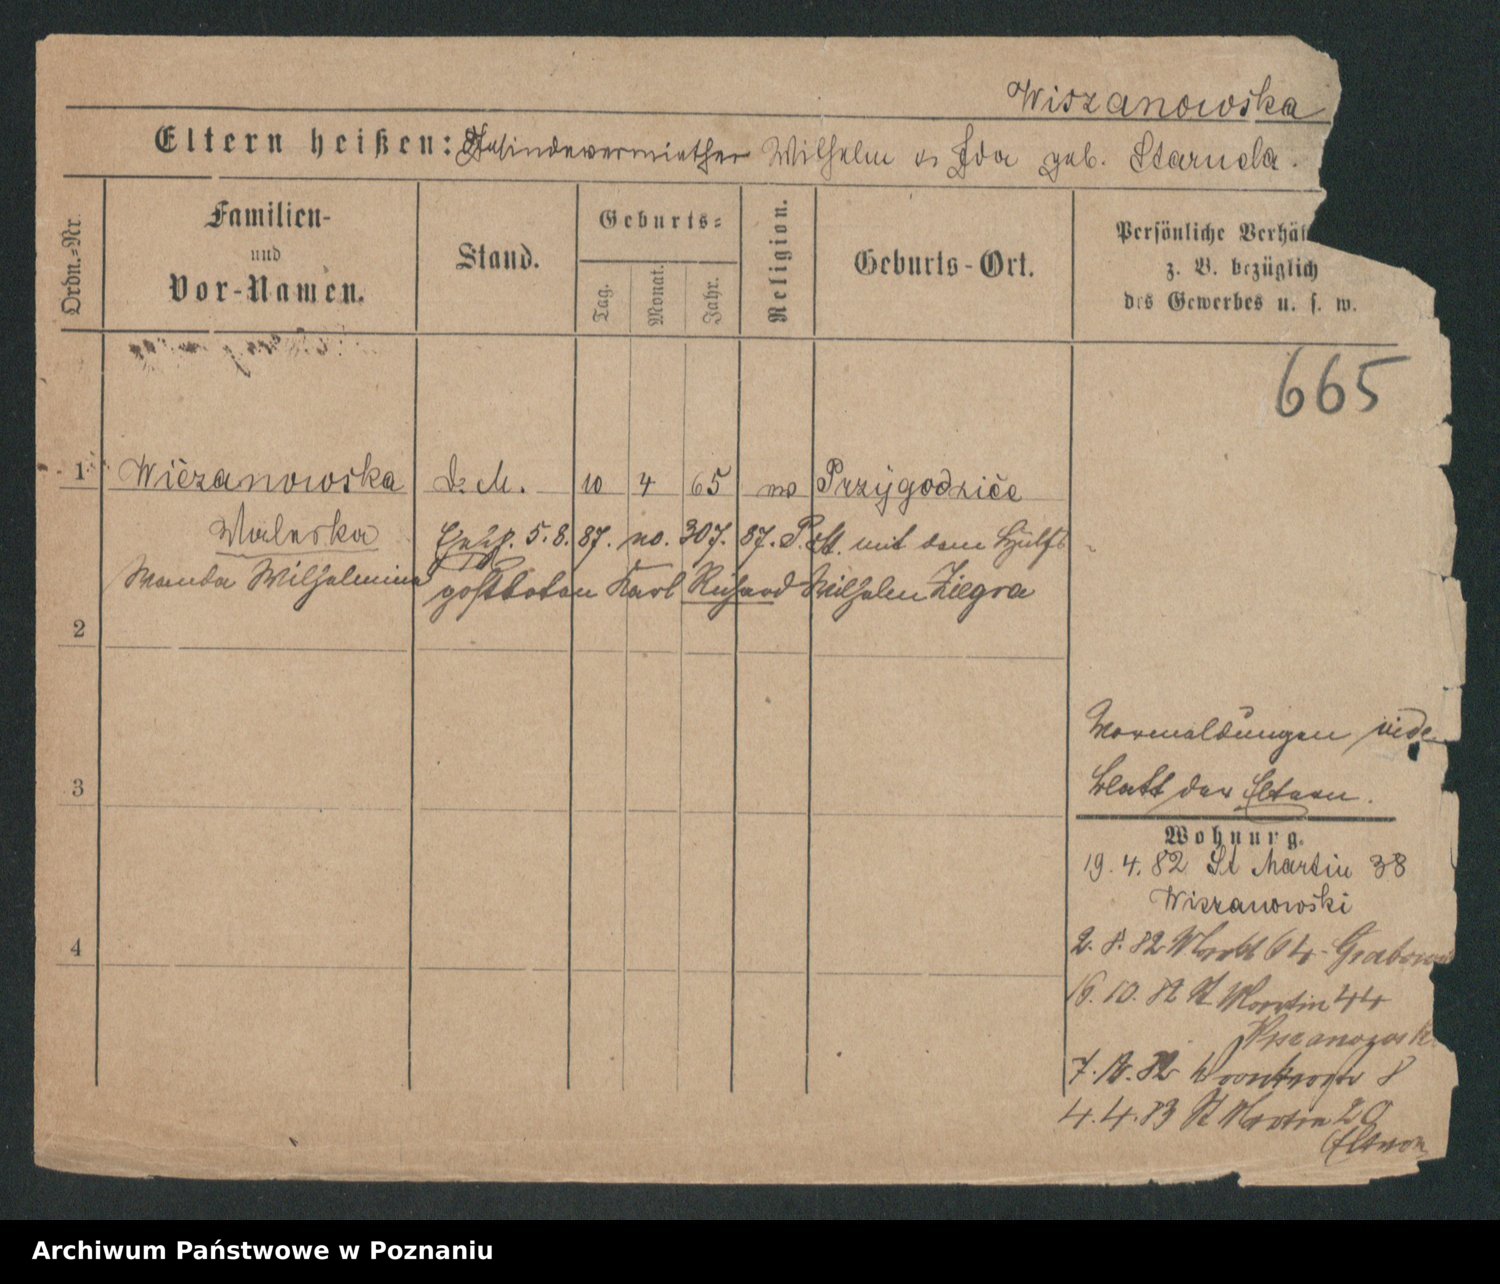 Wiszanowska
Eltern heißen: Gesindevermiether Wilhelm u Ida geb. Staruda.
Ordn.=Nr.
Familien-
und
Vor-Namen.
Stand.
Geburts=
Tag.
Monat.
Jahr.
Religion.
Geburts-Ort.
Persönliche Verhäl
z. B. bezüglich
des Gewerbes u. s. w.
665
1 Wiszanowska D. M. 10 4 65 ev Przygodzice
Waleska 5. 8. 87. no. 307. 87. P. St. mit dem Hülfs
Wanda Wilhelmine postboten Karl Richard Wilhelm Zilegra
2
3
4
Vormeldungen vide
Blatt der Eltern.
Wohnung.
19. 4. 82 St Martin 38
Wiszanowski
2. 8. 82 Markt 64 Grabows
16. 10. 82 St Martin 44
7. 82 8
4. 4. 83 St Martin 20
Eltern
Archiwum Państwowe w Poznaniu